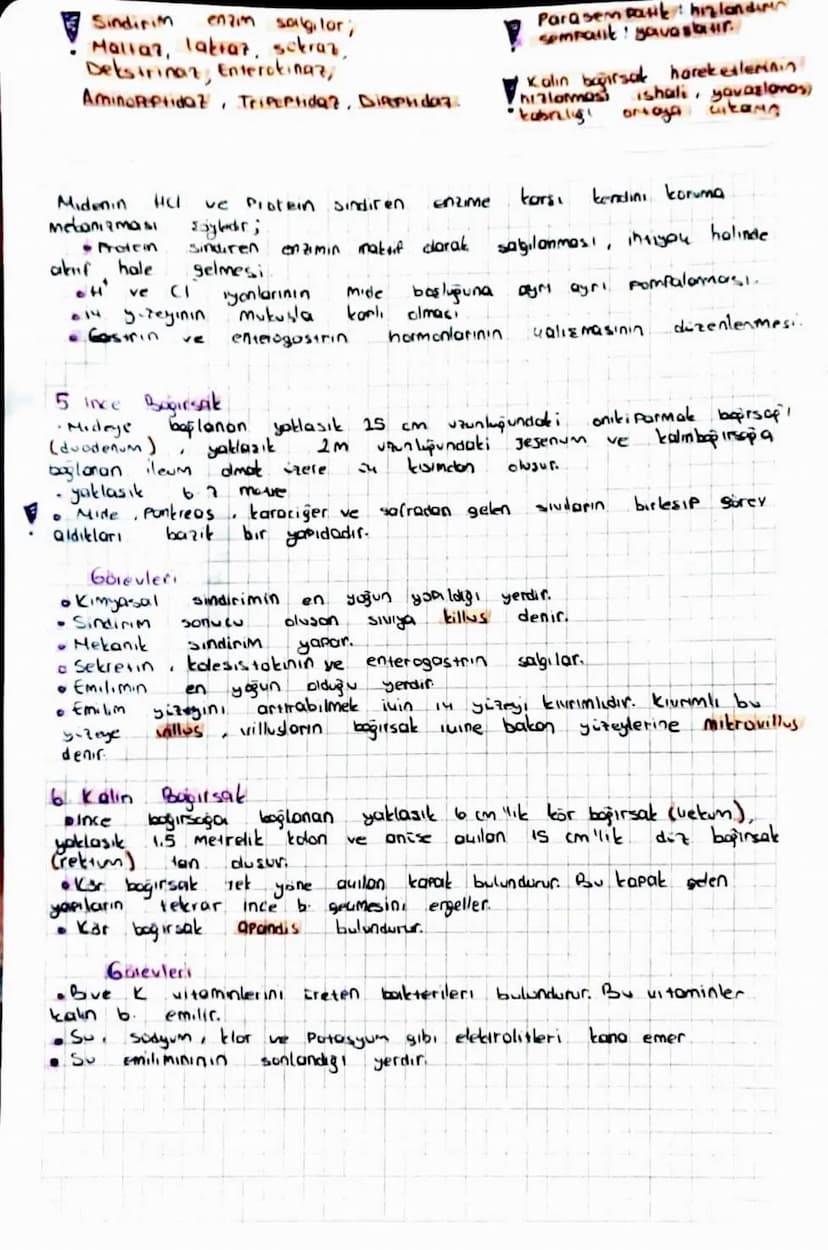 Sindirim enzim salgılar;
Maltaz, laktaz, sükraz,
Deksirinaz, Enterokinaz,
Aminopeptidaz, Tripeptidaz, Dipeptidaz.
Parasempatik: hızlandırır
sempatik: yavaşlatır.
Kalın bağırsak hareketlerinin
hızlanması ishali, yavaşlaması
kabızlığı ortaya çıkarır
Midenin HCl ve Protein sindiren enzime karşı kendini koruma
mekanizması şöyledir;
• Protein sindiren enzimin inaktif olarak salgılanması, ihtiyaç halinde
aktif hale gelmesi
• H⁺ ve Cl⁻ iyonlarının mide boşluğuna ayrı ayrı pompalanması.
• iç yüzeyinin mukusla kaplı olması
• Gastrin ve enterogastrin hormonlarının çalışmasının düzenlenmesi.
5 İnce Bağırsak
• Mideye bağlanan yaklaşık 25 cm uzunluğundaki onikiparmak bağırsağı
(duodenum), yaklaşık 2m uzunluğundaki jejenum ve kalınbağırsağa
bağlanan ileum olmak üzere üç kısımdan oluşur.
• yaklaşık 6 7 metre
• Mide, Pankreas, karaciğer ve safradan gelen sıvıların birleşip görev
aldıkları bazik bir yapıdadır.
Görevleri
• Kimyasal sindirimin en yoğun yapıldığı yerdir.
• Sindirim sonucu oluşan sıvıya killus denir.
• Mekanik sindirim yapar.
• Sekretin, kolesistokinin ve enterogastrin salgılar.
• Emilimin en yoğun olduğu yerdir
• Emilim yüzeyini arttırabilmek için iç yüzeyi kıvrımlıdır. Kıvrımlı bu
yüzeye villus, villusların bağırsak içine bakan yüzeylerine mikrovillus
denir.
6 Kalın Bağırsak
• İnce bağırsağa bağlanan yaklaşık 6 cm'lik kör bağırsak (çekum),
yaklaşık 1.5 metrelik kolon ve anüse açılan 15 cm'lik düz bağırsak
(rektum) tan oluşur.
• Kör bağırsak tek yöne açılan kapak bulundurur. Bu kapak gelen
yapıların tekrar ince b. geçmesini engeller.
• Kör bağırsak apandis bulundurur.
Görevleri
• B ve K vitaminlerini üreten bakterileri bulundurur. Bu vitaminler
kalın b. emilir.
• Su, sodyum, klor ve Potasyum gibi elektrolitleri kana emer
• Su emilimininin sonlandığı yerdir.